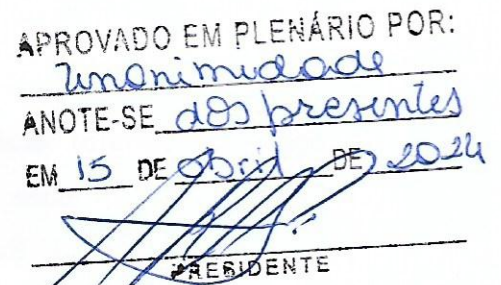 APROVADO EM PLENÁRIO POR:
Unanimidade
ANOTE-SE dos presentes
EM 15 DE Abril DE 2024
PRESIDENTE